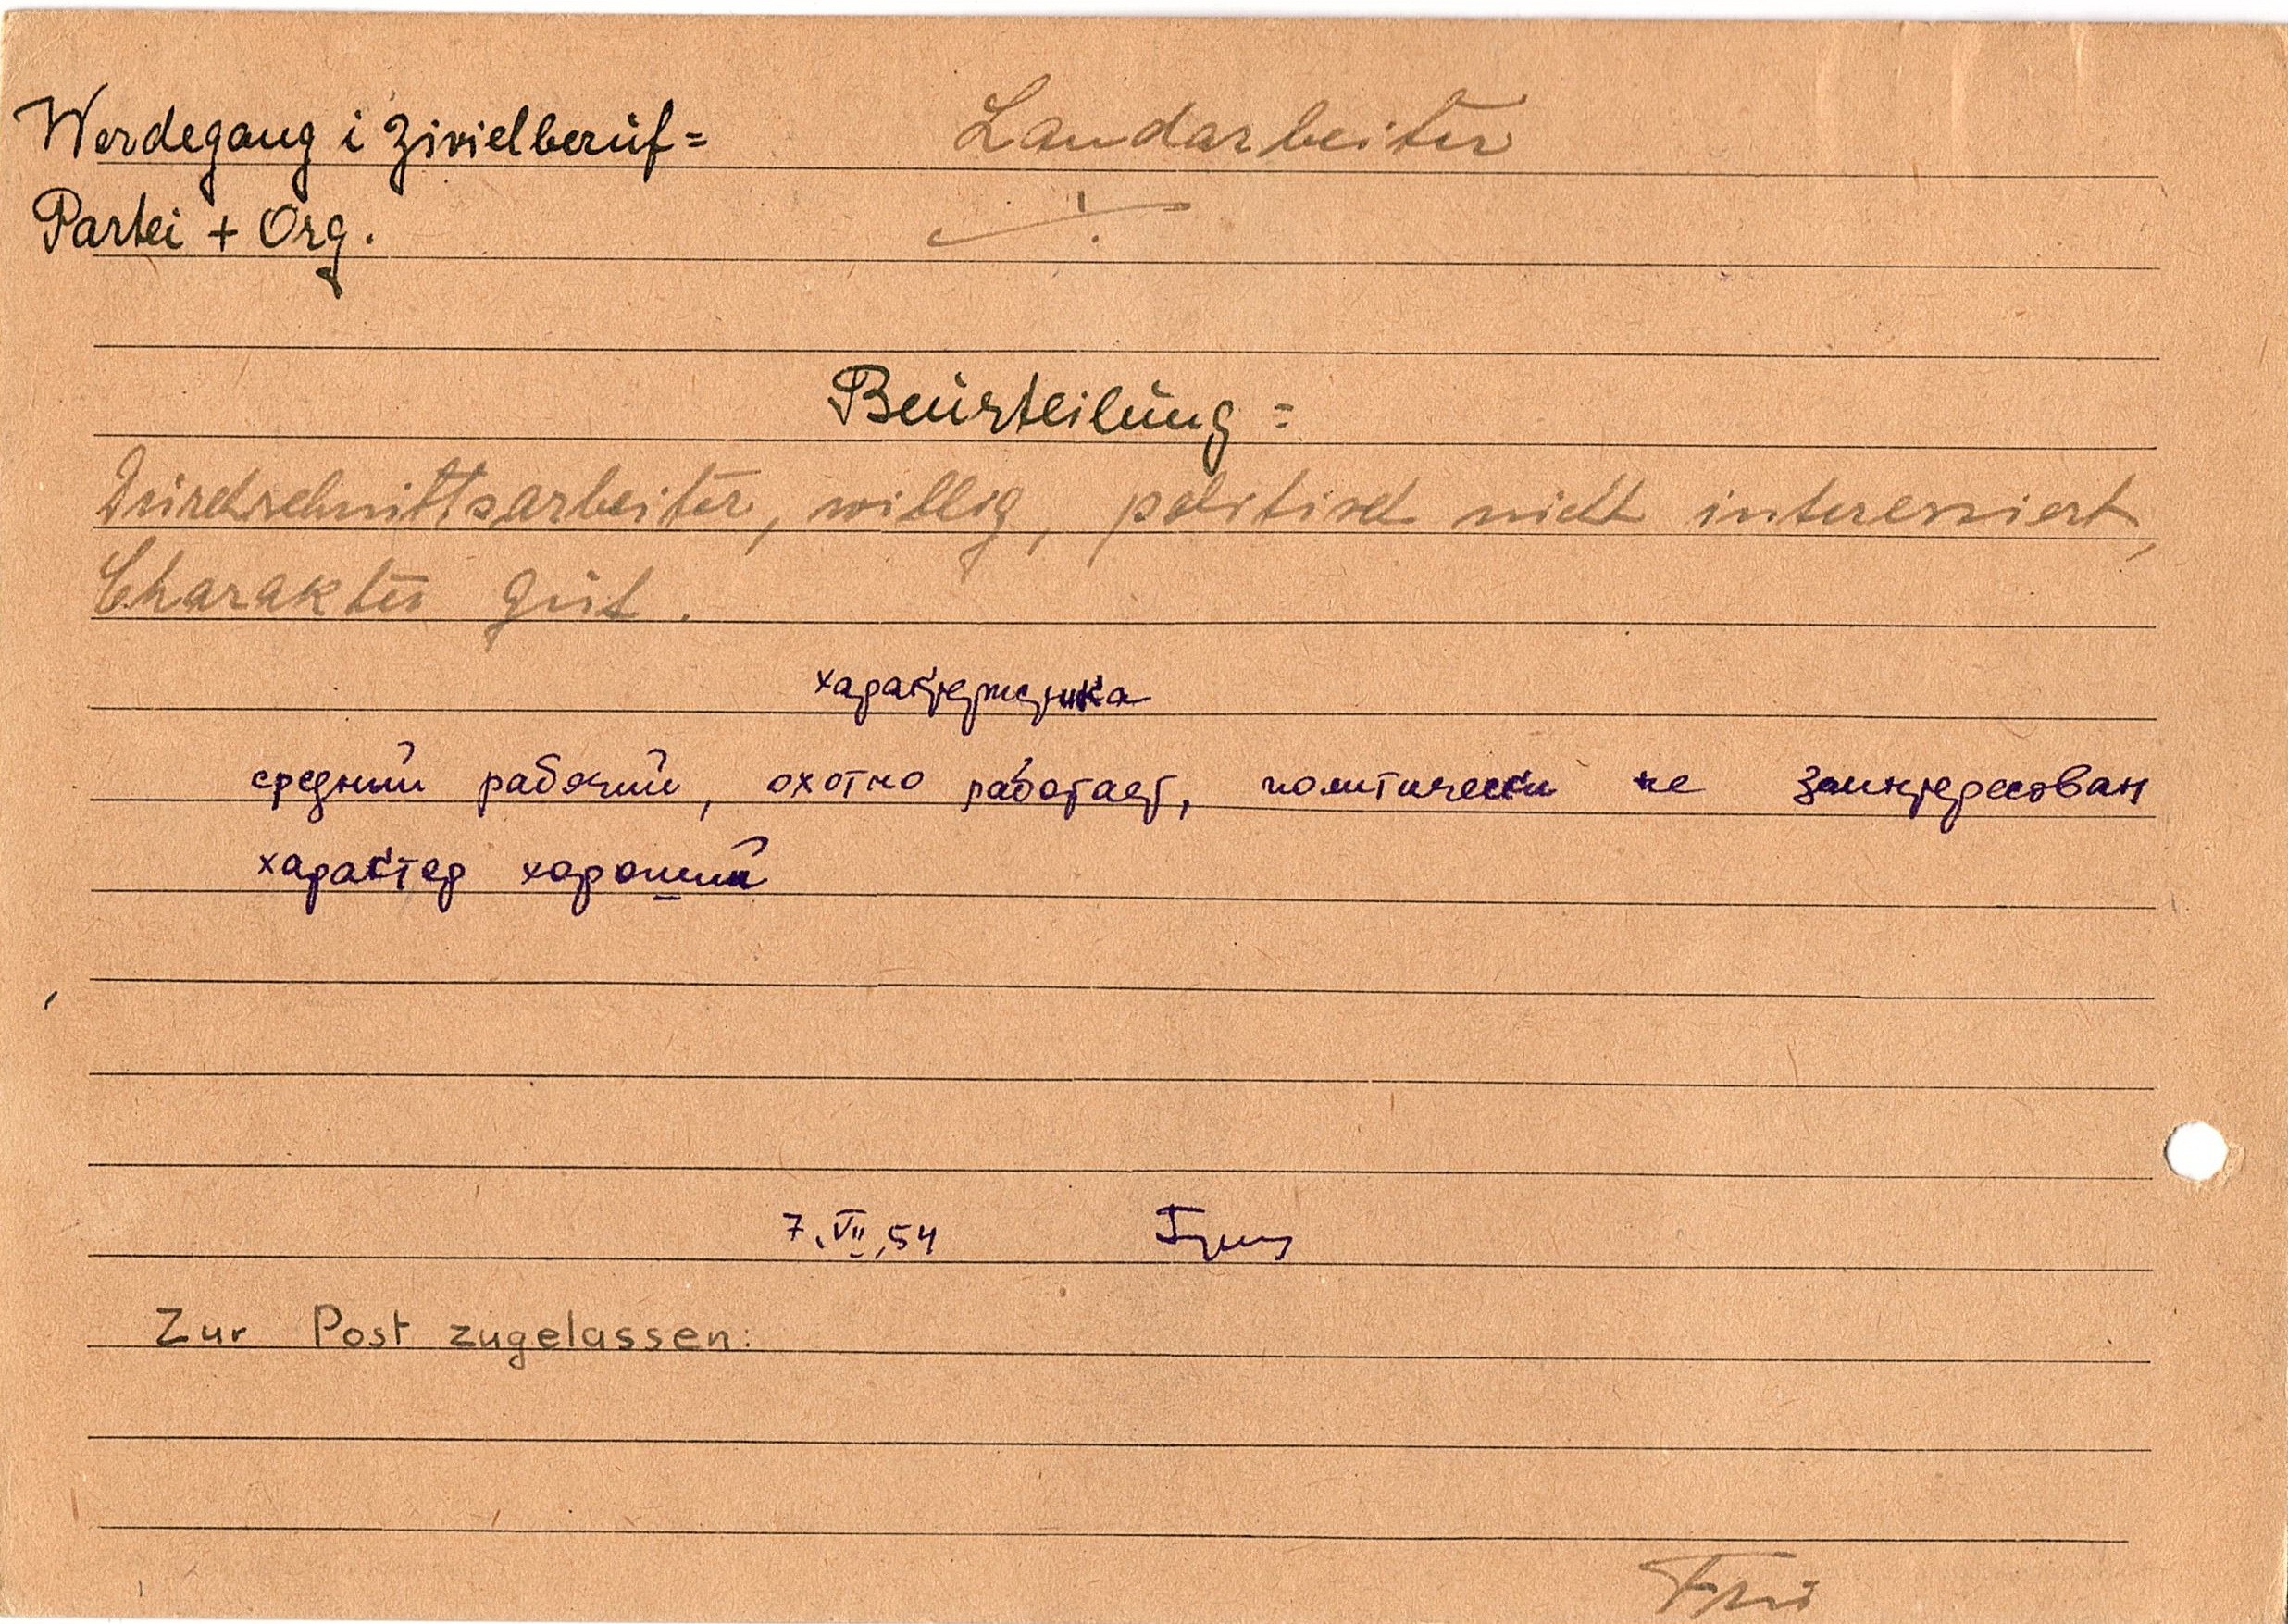 Werdegang i Zivielberuf= Landarbeiter
Partei + Org. ./.
Beurteilung =
Durchschnittsarbeiter, willig, politisch nicht interessiert,
Charakter gut.
характеристика
средний рабочий, охотно работает, политически не заинтересован
характер хороший
7.VII.54
Zur Post zugelassen: